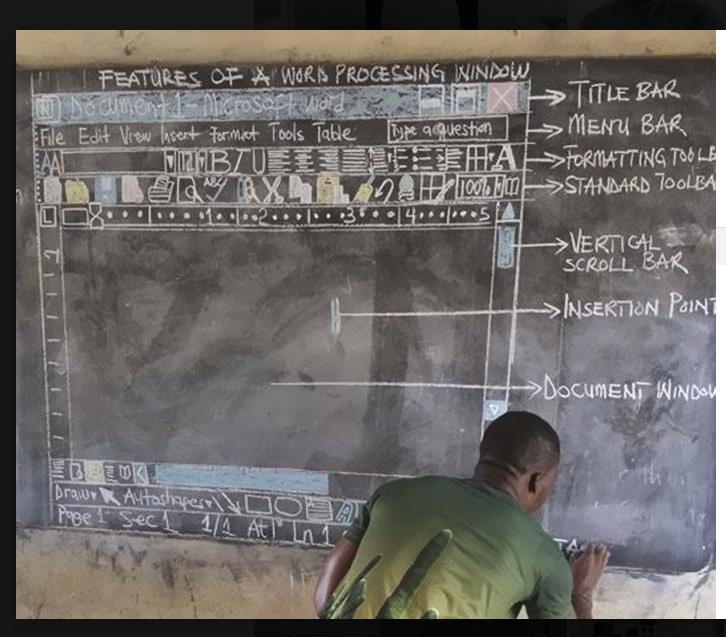 FEATURES OF A WORD PROCESSING WINDOW
Document 1 - Microsoft word
TITLE BAR
File Edit View Insert Format Tools Table
Type a question
MENU BAR
AA
B I U
A
FORMATTING TOOLB
100%
STANDARD TOOLBA
L
1 2 3 4 5
VERTICAL
SCROLL BAR
INSERTION POINT
DOCUMENT WINDOW
Draw Autoshapes
A
Page 1 Sec 1 1/1 At 1" Ln 1
TA